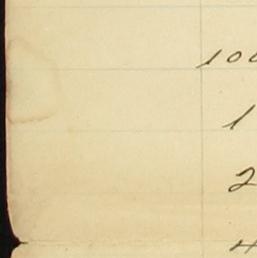 100
1
2
4